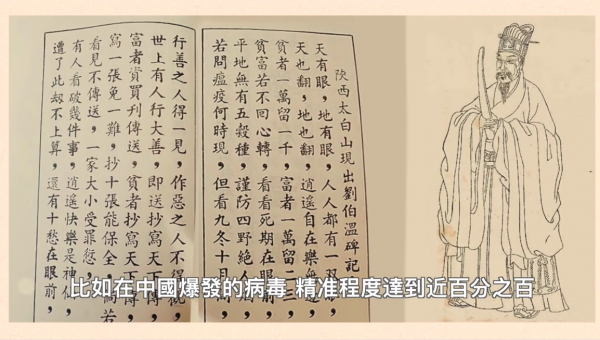 陝西太白山現出劉伯溫碑記
天有眼，地有眼，人人都有一雙
天也翻，地也翻，逍遙自在樂無
貧者一萬留一千，富者一萬留二三，
貧富若不回心轉，看看死期在眼前，
平地無有五穀種，謹防四野絕人
若問瘟疫何時現，但看九冬十月
行善之人得一見，作惡之人不得
世上有人行大善，即送抄寫天下
富者資買刊傳送，貧者抄寫天下
寫一張免一難，抄十張能保全，若
看見不傳送，一家大小受罪愆，
有人看破幾件事，逍遙快樂是神
遭了此劫不上算，還有十愁在眼前，
比如在中國爆發的病毒 精准程度達到近百分之百